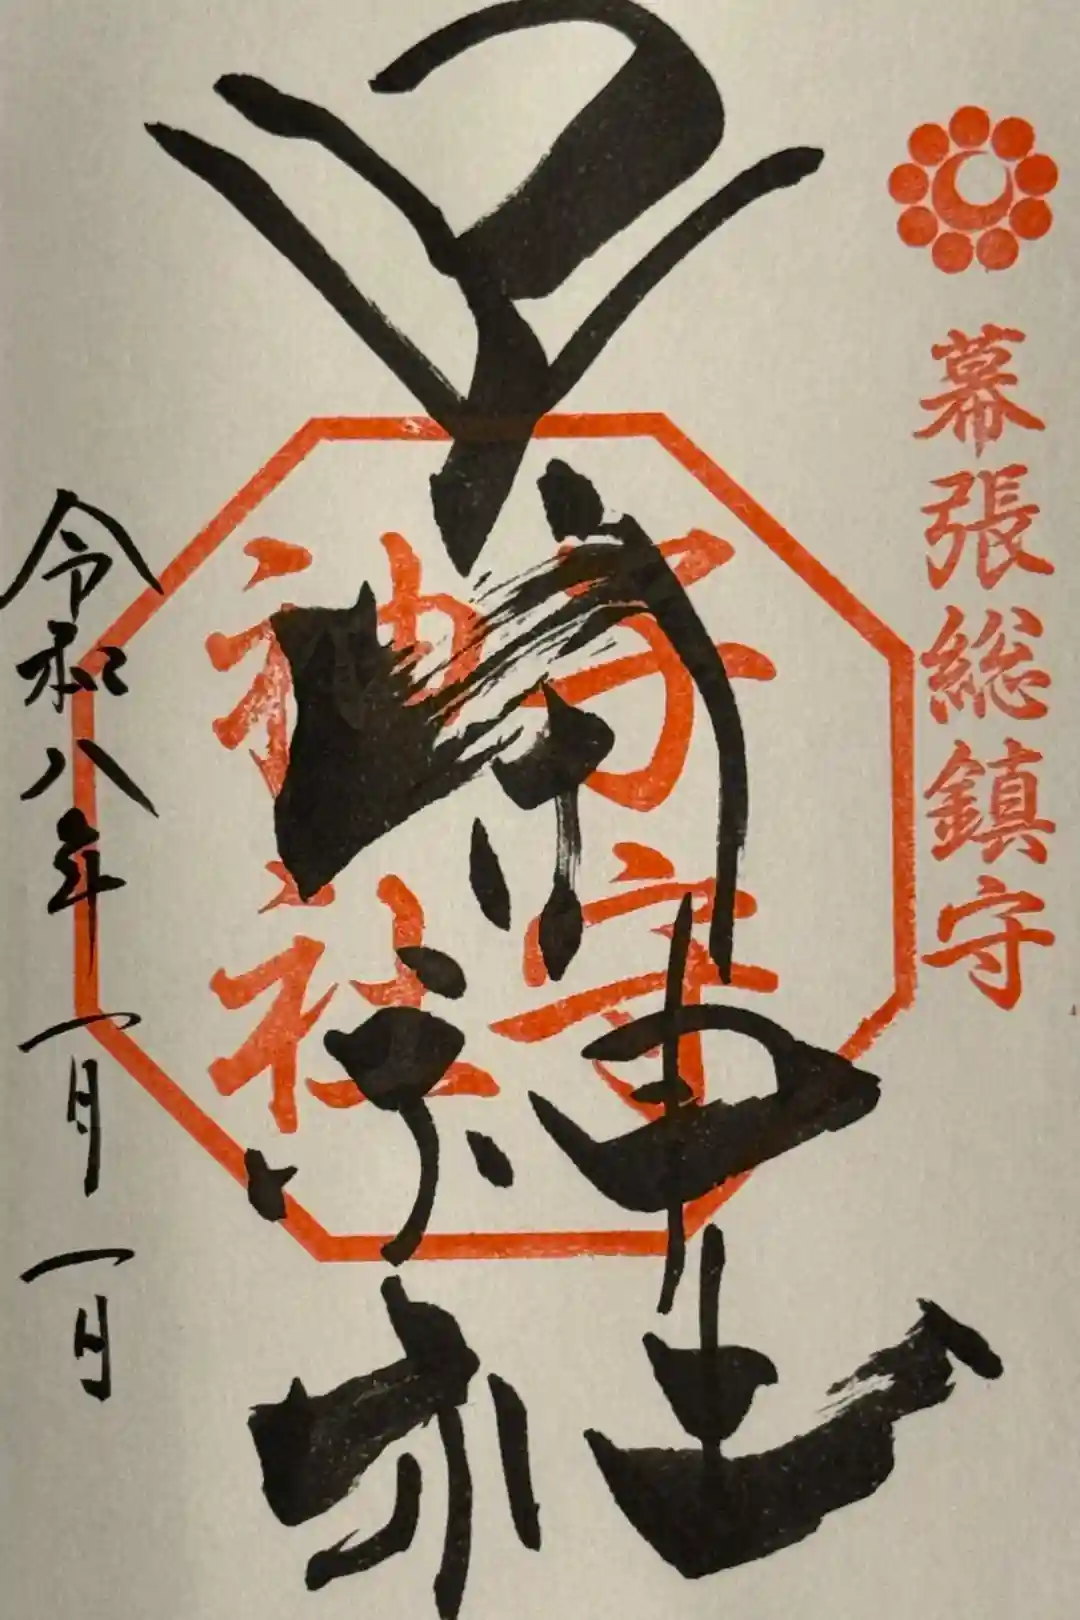 幕張総鎮守
子守神社
子守神社
令和八年一月一日